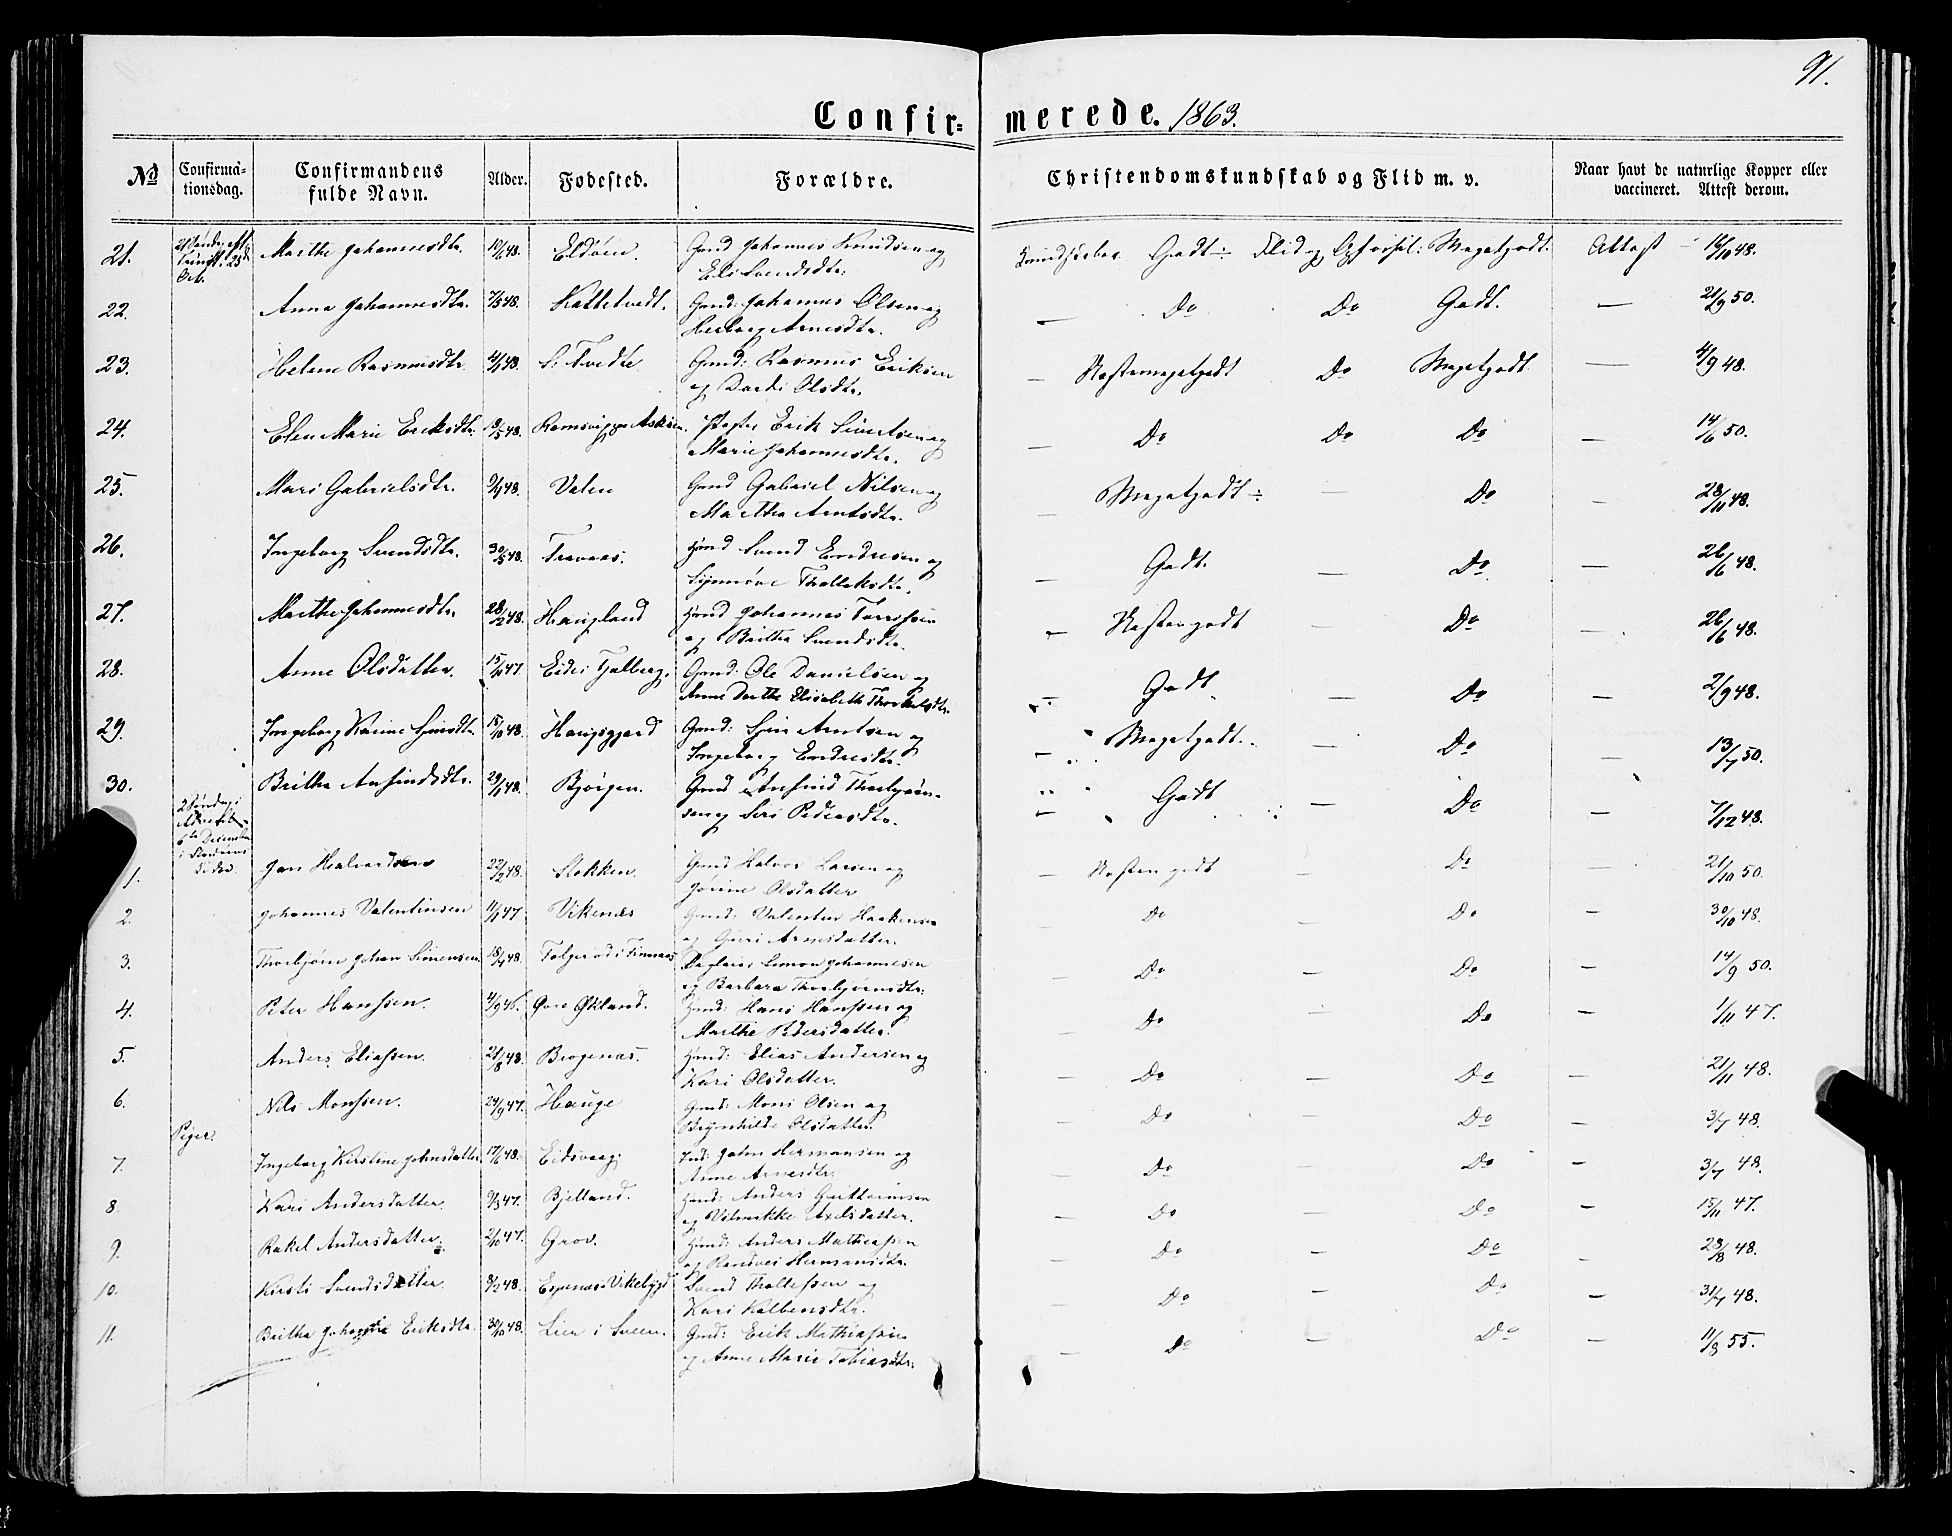 91.
Confir= merede. 1863.
No
Confirma-
tionsdag.
Confirmandens
fulde Navn.
Alder.
Fødested.
Forældre.
Christendomskundskab og Flid m. v.
Naar havt de naturlige Kopper eller
vaccineret. Attest derom.
21. Marthe Johannesdtr. 10/1 48. Eldøen. Gmd Johannes Knudsen og
Eli Svendsdtr: Kundskaber Godt ÷ Flid og Opførsel: Megetgodt. Attest – 16/10 48.
22. Anna Johannesdtr. 7/5 48. Kattetvedt. Gmd: Johannes Olsen og
Herborg Arnesdtr. — Do Do Godt. — 21/9 50.
23. Helene Rasmusdtr. 4/1 48. S: Tvedte Gmd: Rasmus Eriksen
og Dorthe Olsdtr. — Næstenmegetgodt Do Megetgodt — 4/9 48.
24. Elen Marie Eriksdtr. 18/5 48. Erik Sivertsen og
Marie Johannesdtr. — Do Do Do — 14/6 50.
25. Mari Gabrielsdtr. 9/1 48. Valen Gmd Gabriel Nilsen og
Martha Arntsdtr. — Megetgodt ÷ — Do — 28/11 48.
26. Ingeborg Svendsdtr. 30/5 48. Travaas. Hmd Svend Endresen og
Synnøve Thollaksdtr. — Godt. — Do — 26/6 48.
27. Marthe Johannesdtr. 28/2 48. Haugland Hmd Johannes
og Britha Svendsdtr. — Næstengodt — Do — 26/6 48.
28. Anne Olsdatter. 15/11 47. Eide i Fjelberg. Gmd: Ole Danielsen og
Anne Dorthe Elisabeth Thorkelsdtr. — Godt — Do — 2/9 48.
29. Ingeborg Karine 15/10 48. Haugsgjerd Gmd: Arntsen og
Ingeborg Endresdtr. — Megetgodt. — Do — 13/7 50.
30. Britha Ansfindsdtr. 29/1 48. Bjørgen. Gmd Ansfind Thorbjørn-
sen og Siri Pedersdtr. — Godt — Do — 7/12 48.
1. Jan Halvardsen 22/2 48. Stokken. Gmd Halvor Larsen og
Jorine Olsdatter — Næsten godt — Do — 21/10 50.
2. Johannes Valentinsen 11/1 47. Vikenæs Gmd: Valentin Haakensen
og Guri Arnesdatter. — Do — Do – 30/10 48.
3. Thorbjørn Johan Simensen 18/4 48. Følgerød i Finnaas Simon Johannesen
og Barbara Thorbjørnsdtr: — Do — Do – 14/9 50.
4. Peter Hanssen. 4/9 46. Øvre Økland. Hmd: Hans Hanssen og
Marthe Pedersdatter. — Do — Do – 1/11 47.
5. Anders Eliassen. 21/8 48. Brogenæs. Hmd: Elias Andersen og
Kari Olsdatter. — Do — Do – 21/11 48.
6. Nils Monssen. 24/9 47. Hauge Gmd: Mons Olsen og
Brynhilde Olsdatter. — Do — Do – 3/7 48.
Piger.
7. Ingeborg Kirstine Johnsdatter 17/6 48. Eidsvaag. John Hermansen og
Anne Arnesdtr. Do — Do – 3/7 48.
8 Kari Andersdatter. 9/3 47. Bjelland. Hmd: Anders Guttormsen
og Vilmikke Axelsdatter. — Do — Do – 15/11 47.
9. Rakel Andersdatter. 2/10 47. Grov. Hmd: Anders Mathiassen
og Randvei Hermansdtr. — Do — Do – 28/8 48.
10. Kirsti Svendsdatter. 8/2 48. Espenæs i Vikebygd Svend Tholleifsen og
Kari Kolbensdtr. — Do — Do – 31/7 48.
11. Britha Johanne Eriksdtr. 30/10 48. Lier i Sveen. Gmd: Erik Mathiassen
og Anne Marie Tobiasdtr: — Do — Do – 11/8 55.